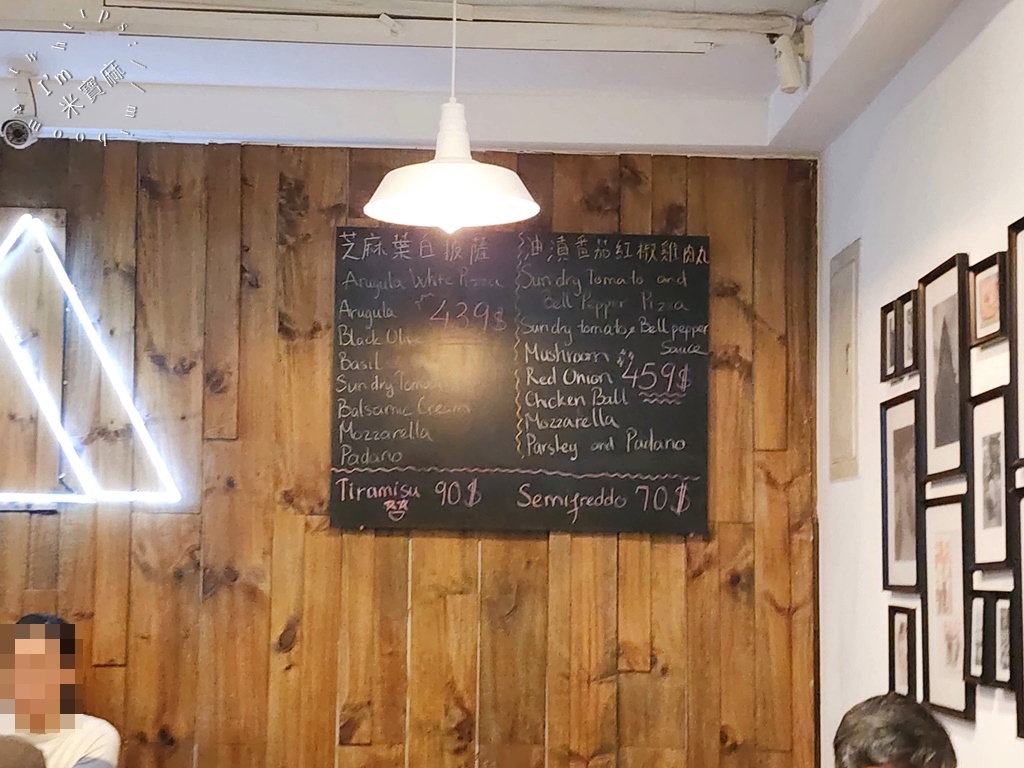 I'm
米寶麻
芝麻葉白披薩
Arugula White Pizza
Arugula 439$
Black Olive
Basil
Sundry Tomato
Balsamic Cream
Mozzarella
Padano
油漬番茄紅椒雞肉丸
Sundry Tomato and
Bell Pepper Pizza
Sundry tomato, Bell pepper
Sauce
Mushroom
Red Onion 459$
Chicken Ball
Mozzarella
Parsley and Padano
Tiramisu 90$
Semifreddo 70$